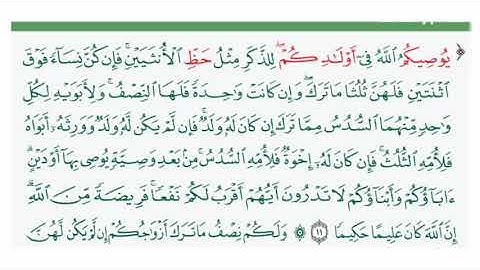 ﴿ يُوصِيكُمُ اللَّهُ فِي أَوْلَادِكُمْ ۖ لِلذَّكَرِ مِثْلُ حَظِّ الْأُنثَيَيْنِ ۚ فَإِن كُنَّ نِسَاءً فَوْقَ
اثْنَتَيْنِ فَلَهُنَّ ثُلُثَا مَا تَرَكَ ۖ وَإِن كَانَتْ وَاحِدَةً فَلَهَا النِّصْفُ ۚ وَلِأَبَوَيْهِ لِكُلِّ
وَاحِدٍ مِّنْهُمَا السُّدُسُ مِمَّا تَرَكَ إِن كَانَ لَهُ وَلَدٌ ۚ فَإِن لَّمْ يَكُن لَّهُ وَلَدٌ وَوَرِثَهُ أَبَوَاهُ
فَلِأُمِّهِ الثُّلُثُ ۚ فَإِن كَانَ لَهُ إِخْوَةٌ فَلِأُمِّهِ السُّدُسُ ۚ مِن بَعْدِ وَصِيَّةٍ يُوصِي بِهَا أَوْ دَيْنٍ ۗ
ءَابَاؤُكُمْ وَأَبْنَاؤُكُمْ لَا تَدْرُونَ أَيُّهُمْ أَقْرَبُ لَكُمْ نَفْعًا ۚ فَرِيضَةً مِّنَ اللَّهِ ۗ
إِنَّ اللَّهَ كَانَ عَلِيمًا حَكِيمًا ۝١١ ۞ وَلَكُمْ نِصْفُ مَا تَرَكَ أَزْوَاجُكُمْ إِن لَّمْ يَكُن لَّهُنَّ